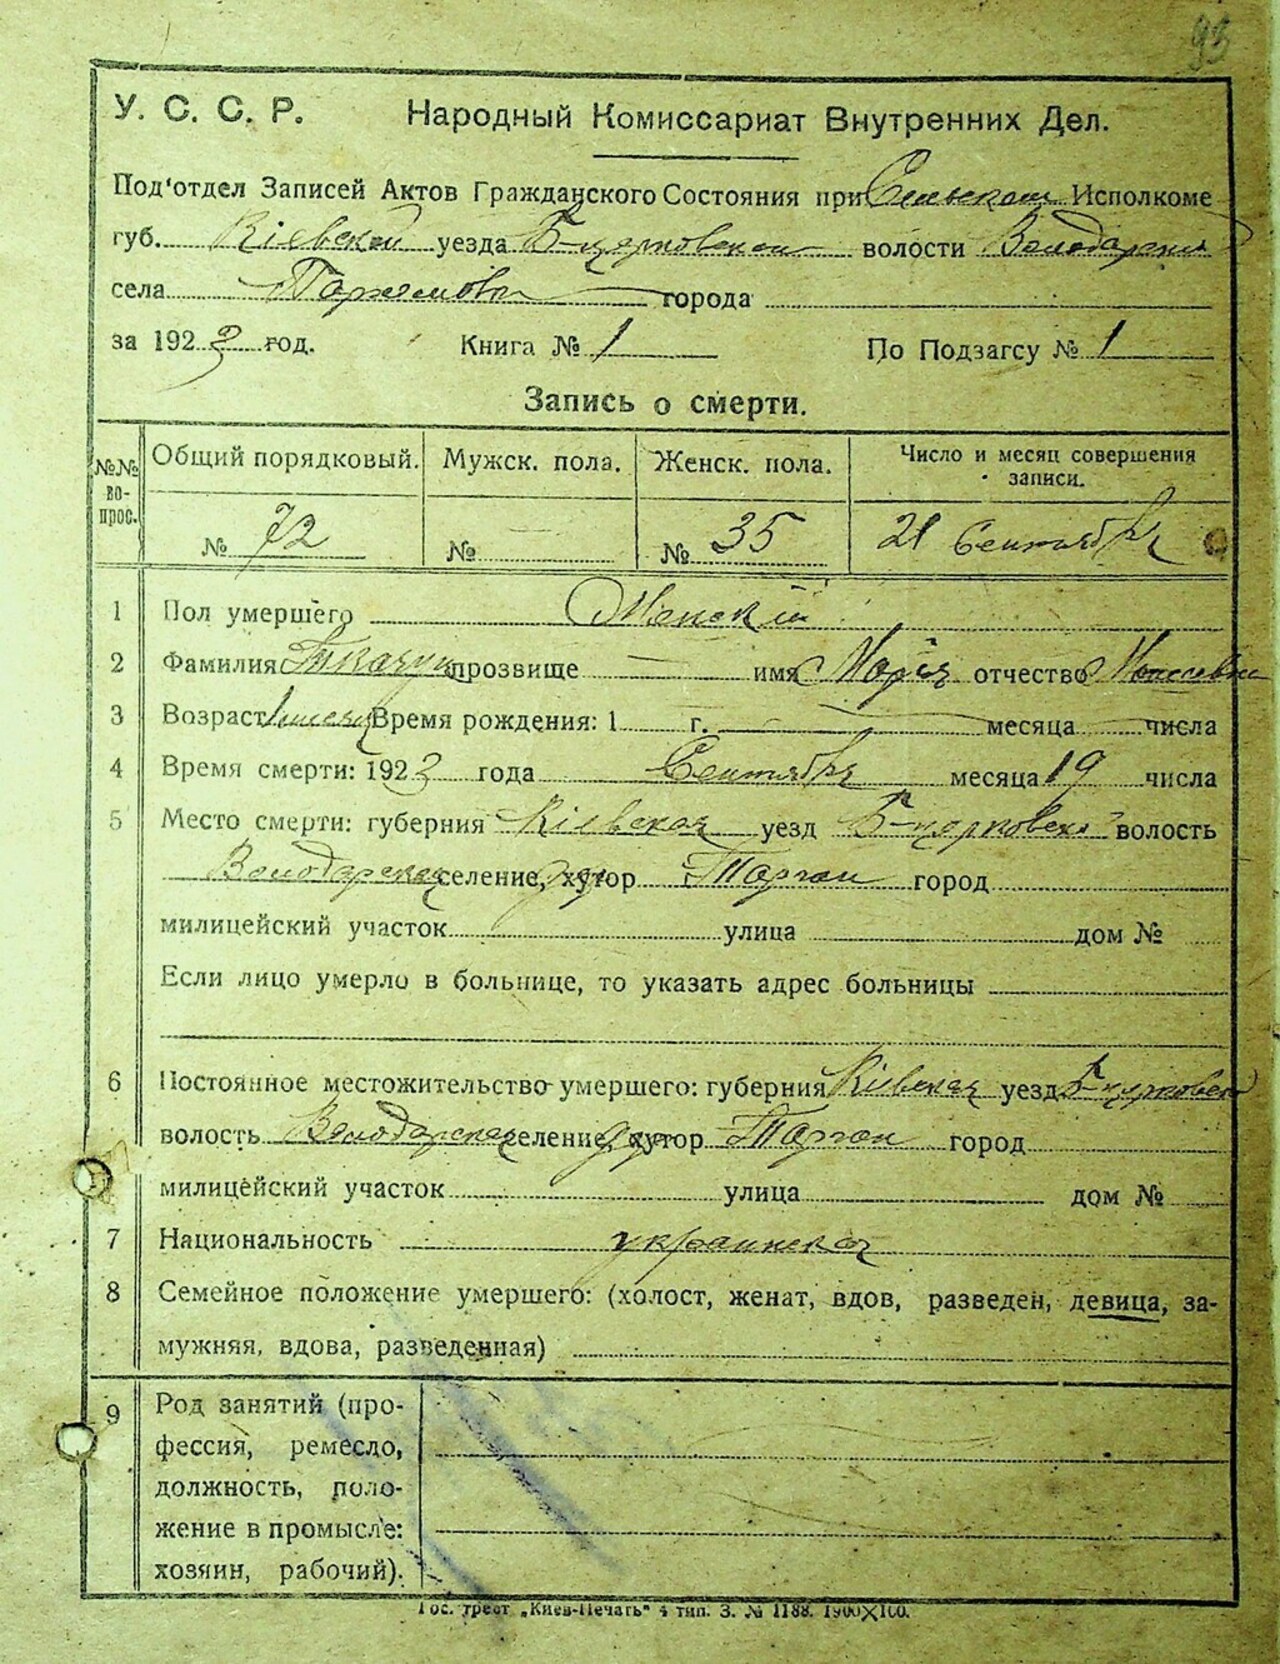 93
У. С. С. Р. Народный Комиссариат Внутренних Дел.
Под'отдел Записей Актов Гражданского Состояния при Сельском Исполкоме
губ. Кіевской уезда Б-церковском волости Володарской
села города
за 1923 год. Книга № 1 По Подзагсу № 1
Запись о смерти.
№№ во-прос. Общий порядковый. Мужск. пола. Женск. пола. Число и месяц совершения записи.
№ 72 № — № 35 21 Сентября
1 Пол умершего Женскій
2 Фамилия Ткачук прозвище — имя Марія отчество
3 Возраст 1 месяц Время рождения: 1 г. — месяца — числа
4 Время смерти: 1923 года Сентября месяца 19 числа
5 Место смерти: губерния Кіевская уезд Б-церковск волость
Володарская селение, хутор Тарган город
милицейский участок улица дом №
Если лицо умерло в больнице, то указать адрес больницы
6 Постоянное местожительство умершего: губерния Кіевская уезд Б-церковск
волость Володарская селение, хутор Тарган город
милицейский участок улица дом №
7 Национальность украинская
8 Семейное положение умершего: (холост, женат, вдов, разведен, девица, за-
мужняя, вдова, разведенная)
9 Род занятий (про-
фессия, ремесло,
должность, поло-
жение в промысле:
хозяин, рабочий).
Гос. трест „Киев-Печать" 4 тип. З. № 1188. 1900X100.